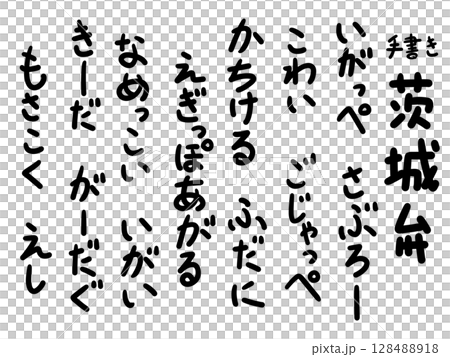 手書き
茨城弁
いがっぺ さぶろー
こわい ごじゃっぺ
かちける ふだに
えぎっぽあがる
なめっこい いがい
きーだ がーだぐ
もさこく えし
PIXTA
pixta.jp - 128488918